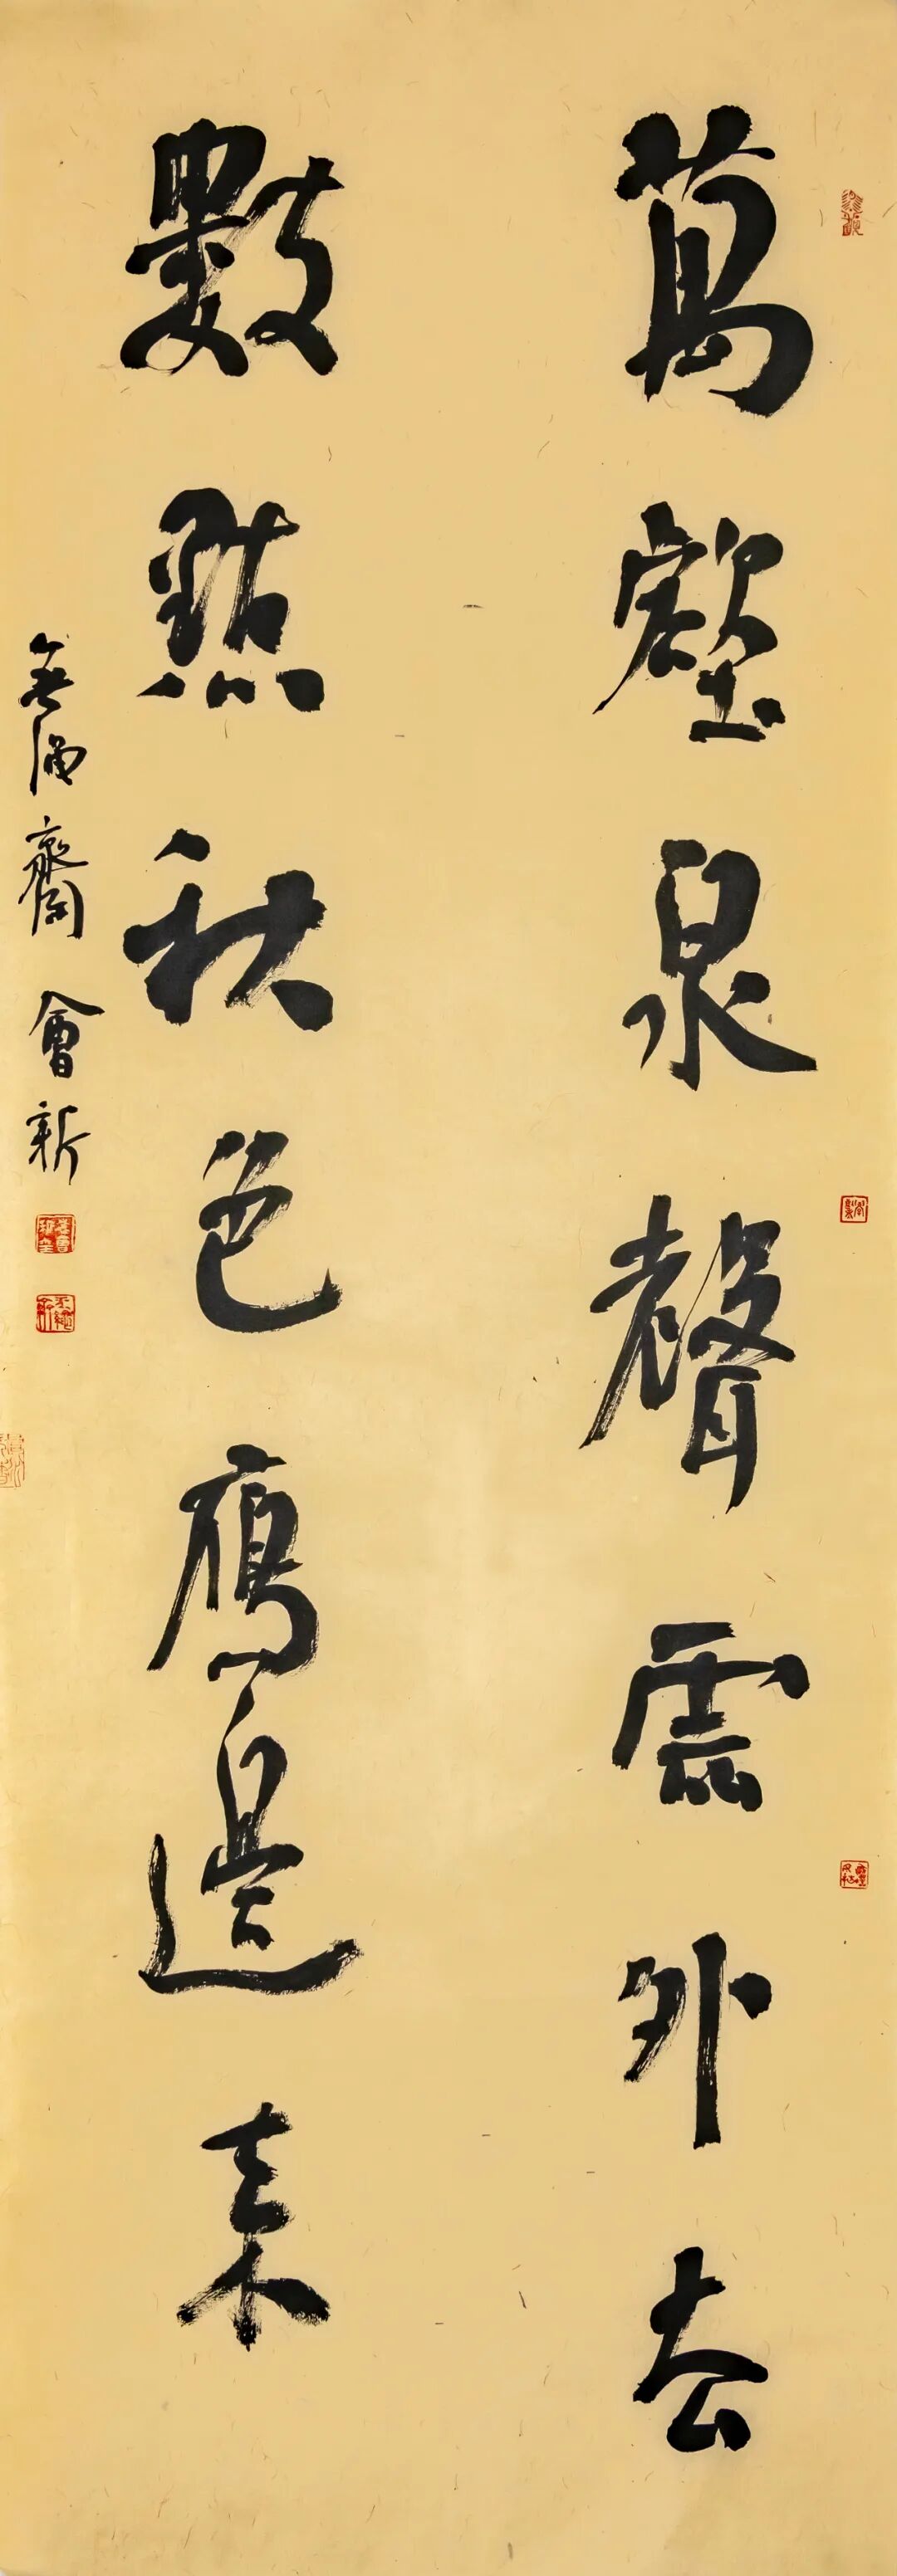 萬壑泉聲雲外去
數點秋色雁邊來
齋會新